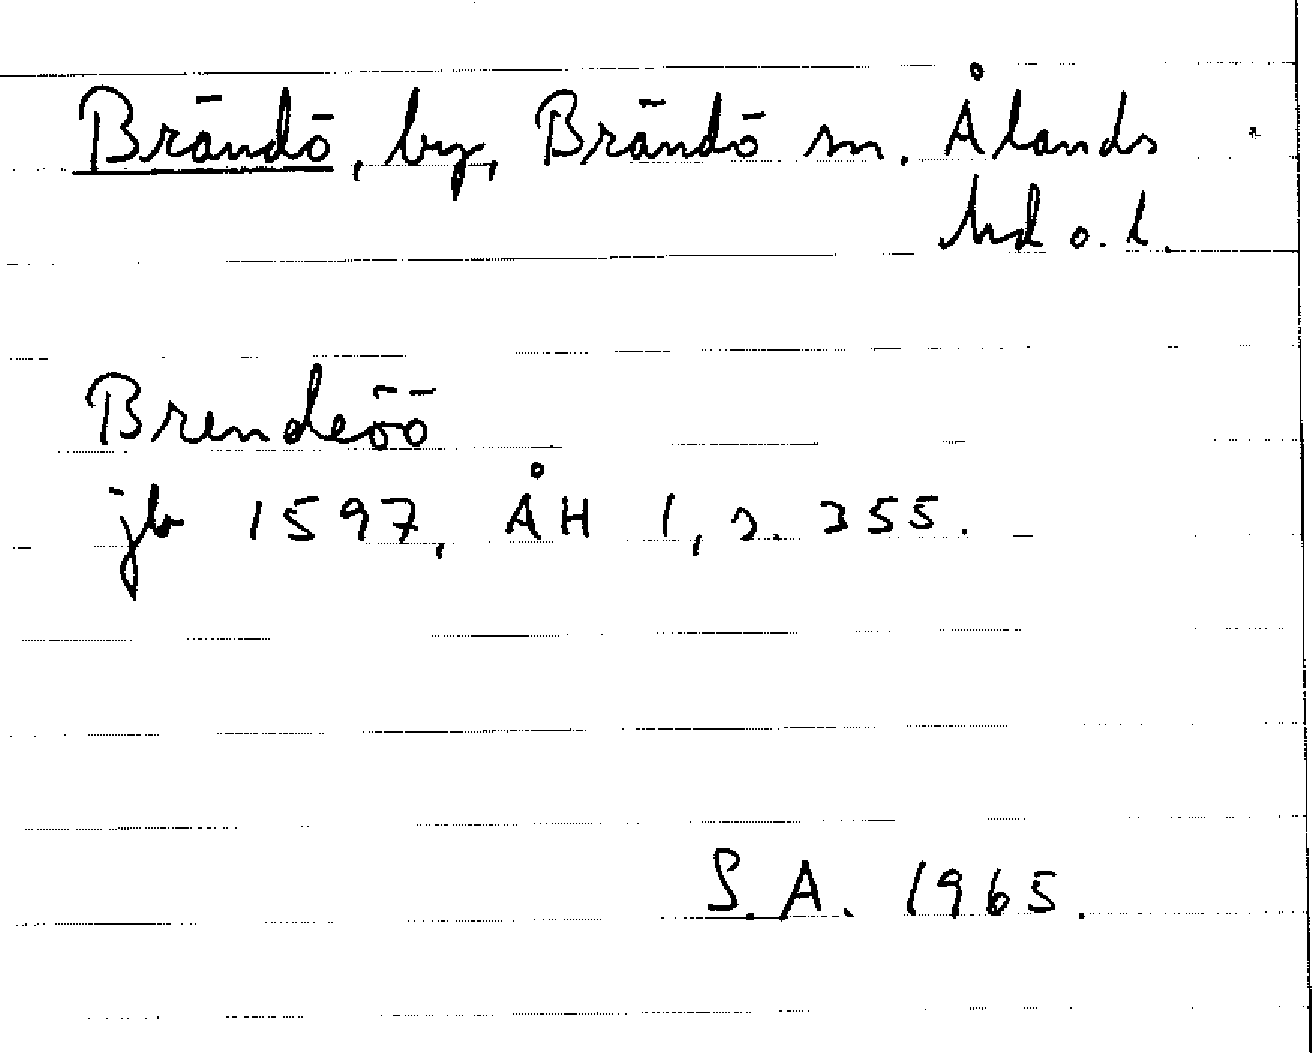 Brändö, by, Brändö sn. Ålands
hd o. l.
Brendeöö
jb 1597, ÅH 1, s. 355.
S. A. 1965.